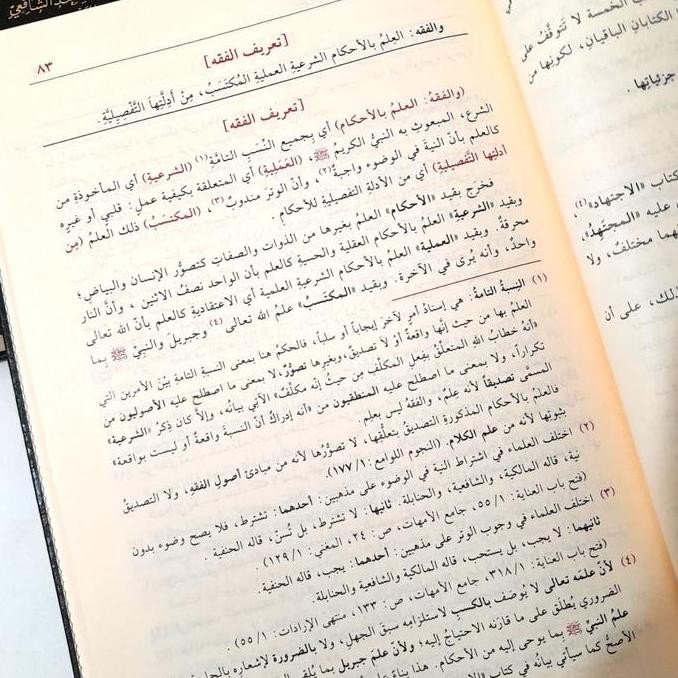 عبد الشافعي
٨٣
[تعريف الفقه]
والفقه: العِلمُ بالأحكام الشرعية العملية المُكتَسَبُ، مِنْ أدِلَّتِها التَّفْصِيلِيَّةِ.
[تعريف الفقه]
(والفقهُ: العلمُ بالأحكام) أي بجميع النِّسَبِ التامَّةِ(١) (الشرعيةِ) أي المأخوذةِ من
الشرع، المبعوثِ به النبيُّ الكريم ﷺ، (العَمَليةِ) أي المتعلقة بكيفية عملٍ: قلبيٍ أو غيرِه
كالعلم بأنّ النيةَ في الوضوء واجبةٌ(٢)، وأنّ الوترَ مندوبٌ(٣)، (المكتسَبُ) ذلك العلمُ (مِن
أدلتِها التَّفصيليةِ) أي من الأدلةِ التفصيليةِ للأحكام.
فخرج بقيدِ «الأحكام» العلمُ بغيرها من الذوات والصفاتِ كتصوُّرِ الإنسان والبياضِ؛
وبقيدِ «الشرعيةِ» العلمُ بالأحكام العقليةِ والحسيةِ كالعلم بأن الواحد نصفُ الاثنين، وأنَّ النار
محرقةٌ. وبقيدِ «العملية» العلمُ بالأحكام الشرعية العلمية أي الاعتقادية كالعلم بأنّ الله تعالى
واحدٌ، وأنه يُرى في الآخرة. وبقيدِ «المكتسَبُ» علمُ الله تعالى(٤) وجبريلَ والنبيِّ ﷺ بما
(١) النِسبةُ التامةُ: هي إسنادُ أمرٍ لآخرَ إيجاباً أو سلباً، فالحكمُ هنا بمعنى النسبةِ التامةِ بيْنَ الأمرين التي
العلمُ بها من حيث إنّها واقعةٌ أوْ لا تصديقٌ، وبغيرها تصوُّرٌ، لا بمعنى ما اصطلح عليه الأصوليون من
«أنه خطابُ الله المتعلِّقُ بفعلِ المكلَّفِ من حيثُ إنّه مكلَّفٌ» الآتي بيانُه، وإلاَّ كان ذِكْرُ «الشرعية»
تكراراً، ولا بمعنى ما اصطلح عليه المنطقيون من «أنه إدراكُ أنّ النسبةَ واقعةٌ أو ليست بواقعة»
المسمَّى تصديقاً لأنه علمٌ، والفقهُ ليس بعلم.
فالعلمُ بالأحكامِ المذكورةِ التصديقُ بتعلُّقِها، لا تصوُّرُها لأنه من مبادئِ أصولِ الفقهِ، ولا التصديقُ
بثبوتِها لأنه من علم الكلام. (النجوم اللوامع: ١/١٧٧).
(٢) اختلف العلماء في اشتراط النية في الوضوء على مذهبين: أحدهما: تشترط، فلا يصح وضوء بدون
نية، قاله المالكية، والشافعية، والحنابلة. ثانيها: لا تشترط، بل تُسنّ، قاله الحنفية.
(فتح باب العناية: ١/٥٥، جامع الأمهات، ص: ٢٤، المغني: ١/١٢٩).
(٣) اختلف العلماء في وجوب الوتر على مذهبين: أحدهما: يجب، قاله الحنفية.
ثانيهما: لا يجب، بل يستحب، قاله المالكية والشافعية والحنابلة.
(فتح باب العناية: ١/٣١٨، جامع الأمهات، ص: ١٣٣، منتهى الإرادات: ١/٥٥).
(٤) لأنّ علمَه تعالى لا يُوصَف بالكسبِ لاستلزامِه سبقَ الجهلِ، ولا بالضرورة لإشعارِه
الضروري يُطلَق على ما قارَنَه الاحتياجُ إليه؛ ولأنّ علمَ جبريل بما يُلقَى
علمُ النبيِّ ﷺ بما يوحى إليه من الأحكام. هذا بناءً على
الأصحُّ كما سيأتي بيانُه في كتاب
الخمسة لا تَتَوقَّفُ على
الكتابانِ الباقيانِ، لكونِها من
جزئياتِها.
كتاب «الاجتهاد»(٤)،
عليه «المجتهِدُ»،
هما مختلفٌ، ولا
ذلك، على أن